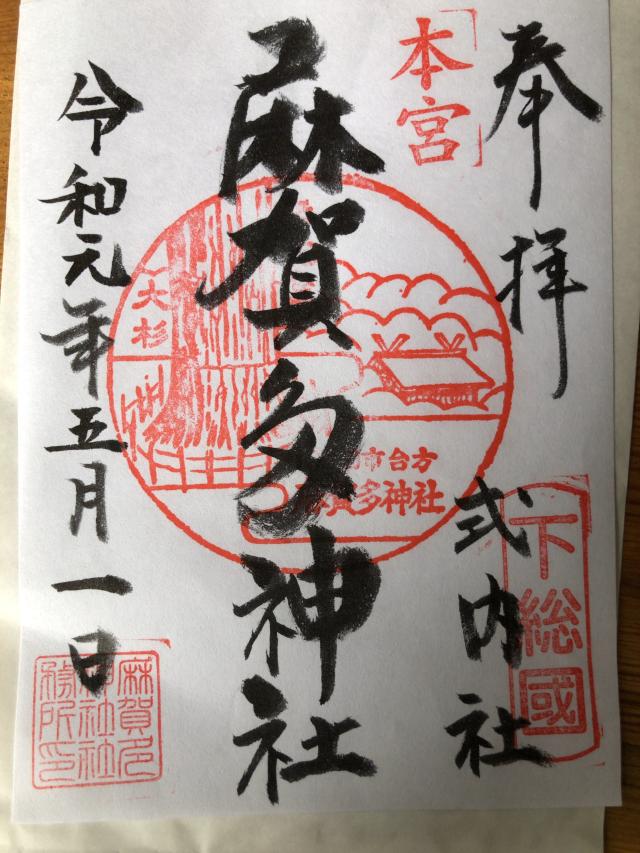 奉拝
下総國
式内社
本宮
麻賀多神社
大杉
市台方
賀多神社
令和元年五月一日
麻賀多
神社社
務所印